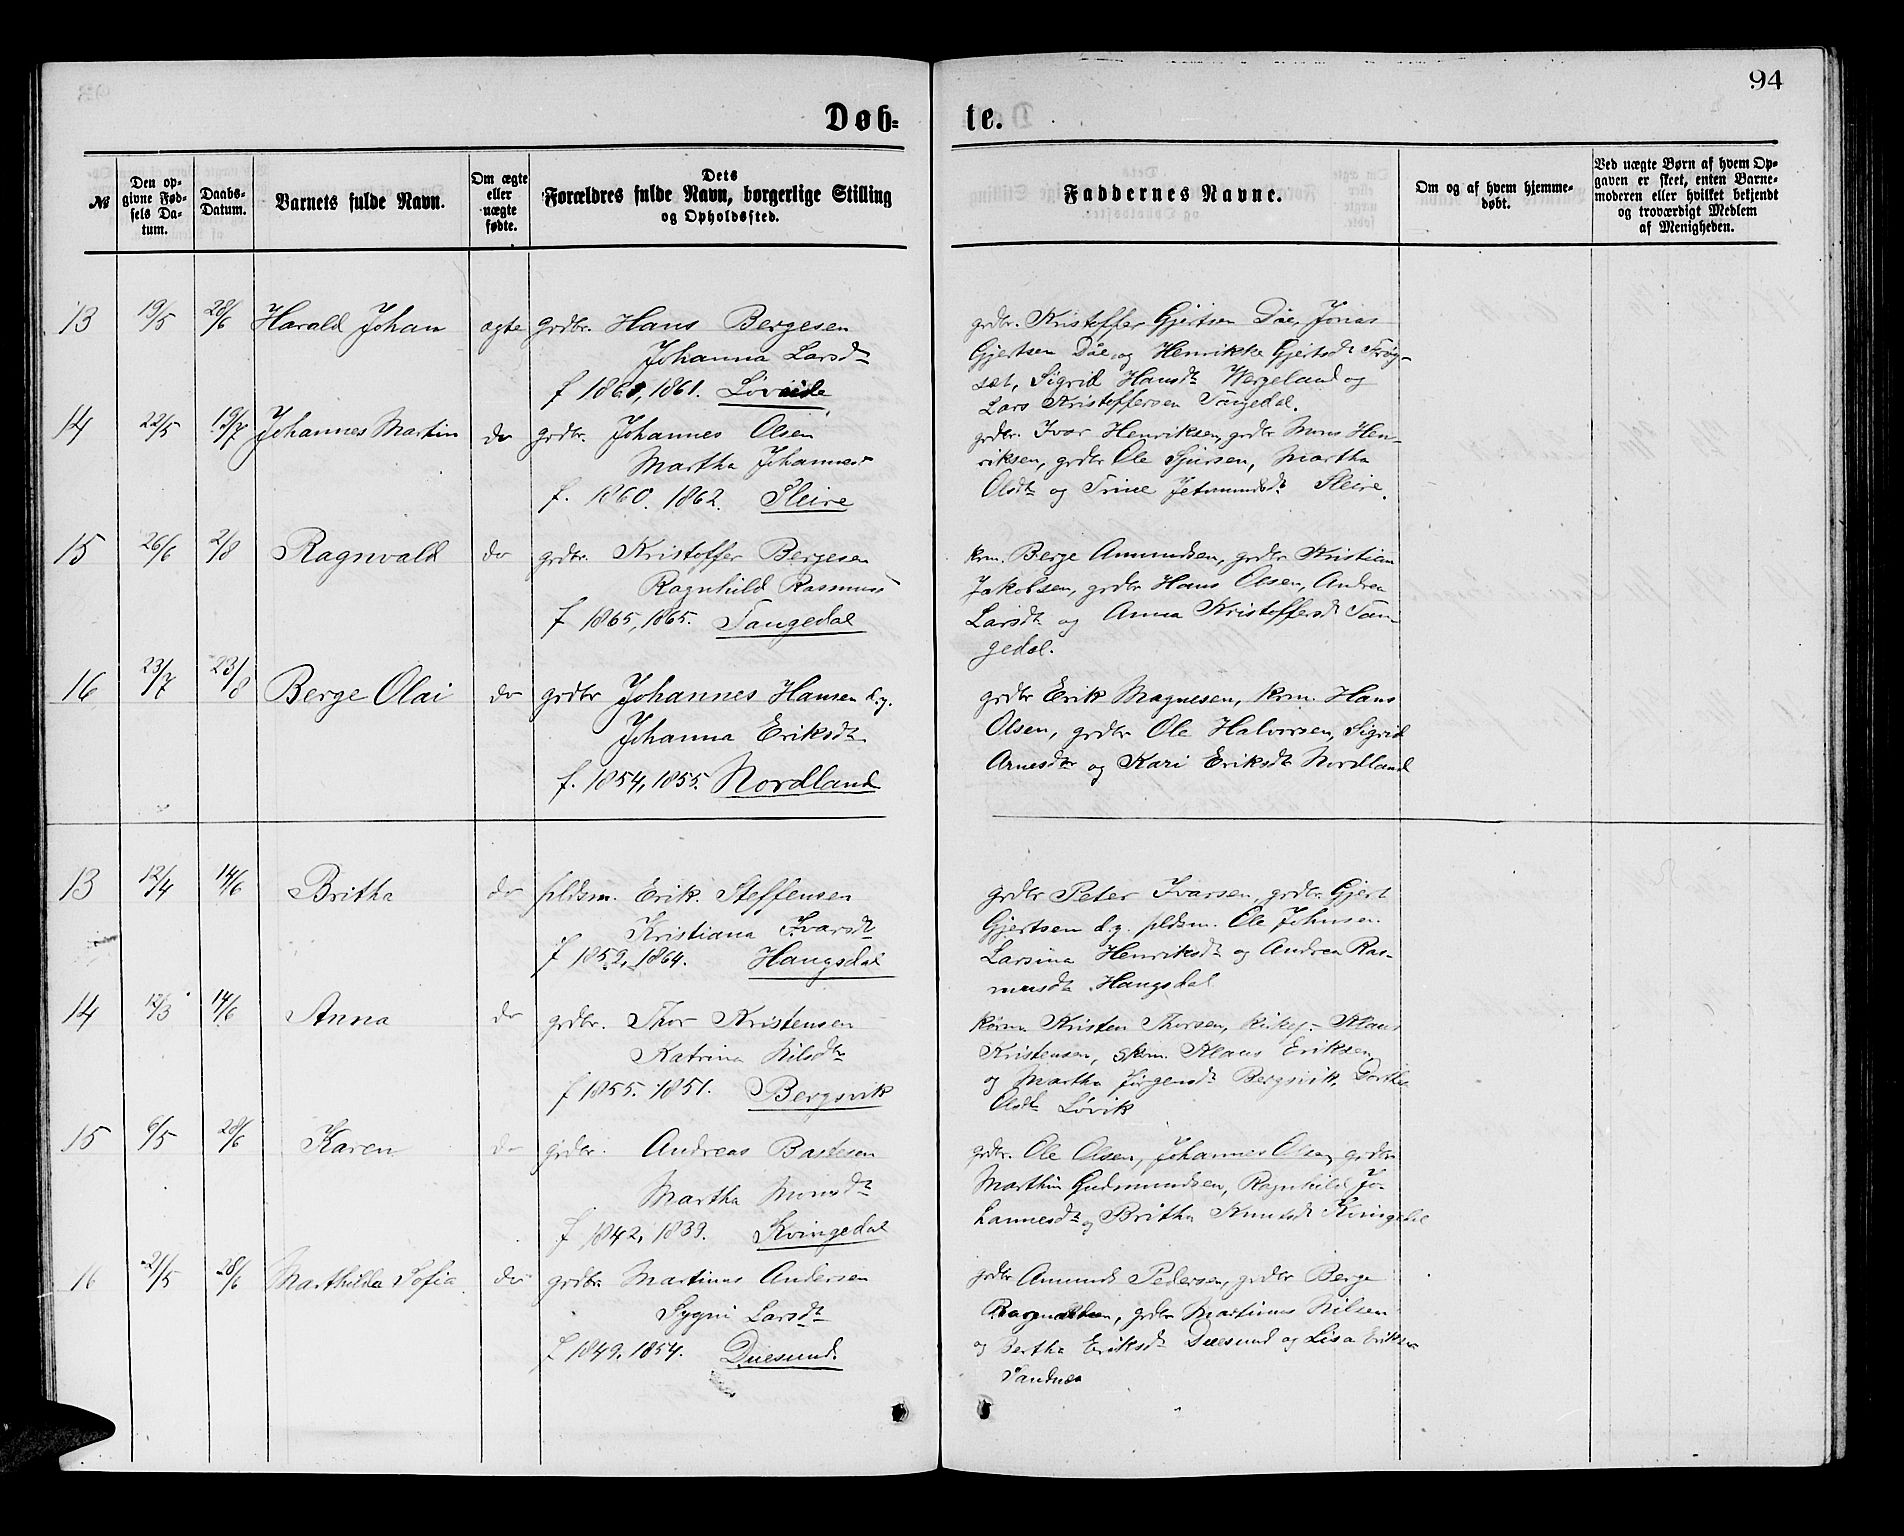 94
Døb- te.
№
Den op-
givne Fød-
sels Da-
tum.
Daabs-
Datum.
Barnets fulde Navn.
Om ægte
eller
uægte
fødte.
Dets
Forældres fulde Navn, borgerlige Stilling
og Opholdssted.
Faddernes Navne.
Om og af hvem hjemme-
døbt.
Ved uægte Børn af hvem Op-
gaven er skeet, enten Barne-
moderen eller hvilket bekjendt
og troværdigt Medlem
af Menigheden.
13 19/5 28/6 Harald Johan ægte grdbr. Hans Bergesen
Johanna Larsdt
f 1861. Løvaide
grdbr. Kristoffer Gjertsen Døe, Jonas
Gjertsen Døe, og Henrikke Gjertsdt Frøy-
set, Sigrid Hansdt Wergeland og
Lars Kristoffersen Tangedal.
14 22/5 19/7 Johannes Martin do grdbr. Johannes Olsen
Martha Johannes
f. 1860. 1862. Sleire
grdbr. Ivar Henriksen, grdbr Mons Hen-
riksen, grdbr Ole Sjursen, Martha
Olsdt og Trine Jetmundsdt Sleire.
15 26/6 2/8 Ragnvald do grdbr. Kristoffer Bergesen
Ragnhild Rasmus
f 1865, 1865. Tangedal
krm. Berge Amundsen, grdbr Kristian
Jakobsen, grdbr Hans Olsen, Andrea
Larsdt og Anna Kristoffersdt Tan-
gedal.
16 23/7 23/8 Berge Olai do grdbr Johannes Hansen d.y.
Johanna Eriksdt
f. 1854, 1855. Nordland
grdbr Erik Magnesen, krm. Hans
Olsen, grdbr Ole Halvorsen, Sigrid
Arnesdtr og Kari Eriksdt Nordland
13 12/4 14/6 Britha do pldsm. Erik Steffensen
Kristiana Ivarsdt
f 1852, 1864. Haugsdal
grdbr Peter Ivarsen, grdbr. Gjert
Gjertsen d.y. pldsm. Ole Johnsen.
Larsina Henriksdt og Andrea Ras-
musdt Haugsdal
14 12/3 14/6 Anna do grdbr. Thor Kristensen
Katrina Nilsdtr
f 1855. 1851. Bergsvik
Kristen Thorsen, Klaus
Kristensen, Klaus Eriksen
og Martha Jørgensdt Bergsvik, Dorthe
Olsdt Løvik
15 6/5 28/6 Karen do grdbr. Andreas Bastesen
Martha Monsdt
f 1842, 1839. Kvingedal
grdbr. Ole Olsen, Johannes Olsen, grdbr
Marthin Gudmundsen, Ragnhild Jo-
hannesdt og Britha Knutsdt Kvingedal
16 21/5 28/6 Marthilda Sofia do grdbr Martinus Andersen
Sygni Larsdt
f 1849. 1854. Duesund.
grdbr Amund Pedersen, grdbr Berge
grdbr Martinus Nilsen
og Bertha Eriksdt Duesund og Lisa
Sandnes